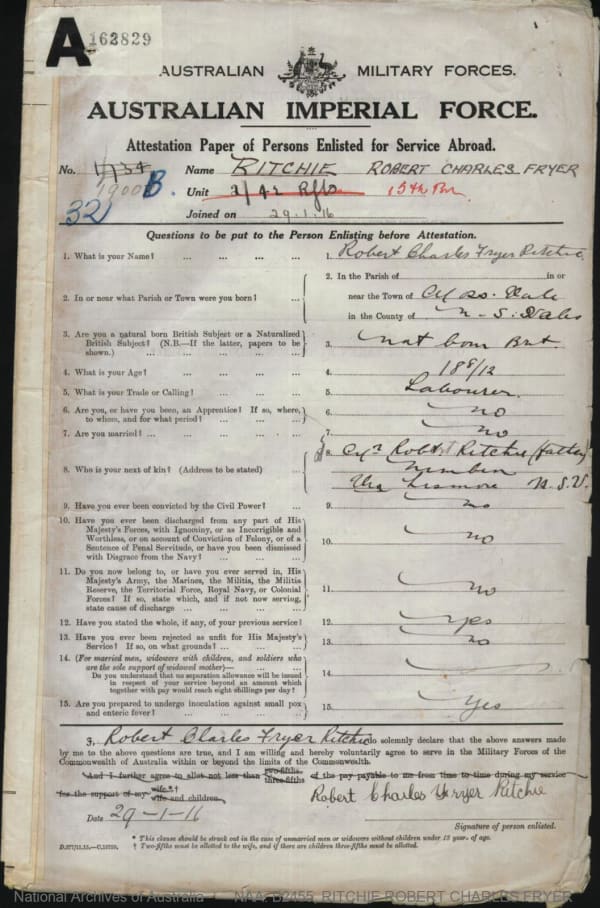 A 163829
AUSTRALIAN MILITARY FORCES.
AUSTRALIAN IMPERIAL FORCE.
Attestation Paper of Persons Enlisted for Service Abroad.
No. 1900B. Name RITCHIE ROBERT CHARLES FRYER
32 Unit 2/42 Rfts 15th Bn
Joined on 29.1.16
Questions to be put to the Person Enlisting before Attestation.
1. What is your Name? ... ... ... ... 1. Robert Charles Fryer Ritchie
2. In or near what Parish or Town were you born? ... 2. In the Parish of in or
near the Town of
in the County of N-S. Wales
3. Are you a natural born British Subject or a Naturalized
British Subject? (N.B.—If the latter, papers to be
shown.) ... ... ... ... 3. nat born Brit.
4. What is your Age? ... ... ... ... 4. 18 8/12
5. What is your Trade or Calling? ... ... ... 5. Labourer.
6. Are you, or have you been, an Apprentice? If so, where,
to whom, and for what period? ... ... ... 6. no
7. Are you married? ... ... ... ... 7. no
8. Who is your next of kin? (Address to be stated) ... 8. Robert Ritchie (father)
Nimbin
Via Lismore N.S.W.
9. Have you ever been convicted by the Civil Power? ... 9. no
10. Have you ever been discharged from any part of His
Majesty's Forces, with Ignominy, or as Incorrigible and
Worthless, or on account of Conviction of Felony, or of a
Sentence of Penal Servitude, or have you been dismissed
with Disgrace from the Navy? ... ... ... 10. no
11. Do you now belong to, or have you ever served in, His
Majesty's Army, the Marines, the Militia, the Militia
Reserve, the Territorial Force, Royal Navy, or Colonial
Forces? If so, state which, and if not now serving,
state cause of discharge ... ... ... ... 11. no
12. Have you stated the whole, if any, of your previous service? 12. yes
13. Have you ever been rejected as unfit for His Majesty's
Service? If so, on what grounds? ... ... ... 13. no
14. (For married men, widowers with children, and soldiers who
are the sole support of widowed mother)— ... ...
Do you understand that no separation allowance will be issued
in respect of your service beyond an amount which
together with pay would reach eight shillings per day? 14.
15. Are you prepared to undergo inoculation against small pox
and enteric fever? ... ... ... ... 15. Yes
I, Robert Charles Fryer Ritchie do solemnly declare that the above answers made
by me to the above questions are true, and I am willing and hereby voluntarily agree to serve in the Military Forces of the
Commonwealth of Australia within or beyond the limits of the Commonwealth.
*And I further agree to allot not less than two-fifths three-fifths of the pay payable to me from time to time during my service
for the support of my wife*† wife and children.
Robert Charles Fryer Ritchie
Date 29-1-16
Signature of person enlisted.
* This clause should be struck out in the case of unmarried men or widowers without children under 18 years of age.
† Two-fifths must be allotted to the wife, and if there are children three-fifths must be allotted.
National Archives of Australia NAA: B2455, RITCHIE ROBERT CHARLES FRYER